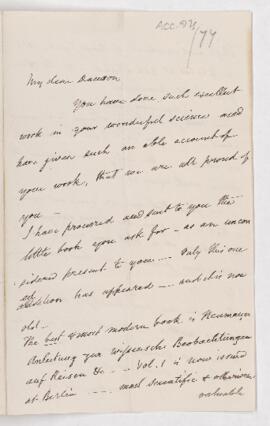 ACC. 976
/77
My dear Dawson
You have done such excellent
work in your wonderful science and
have given such an able account of
your work, that we are all proud of
you —
I have procured and sent to you the
little book you ask for — as an
present to you — Only this one
edition has appeared — and it is now
old —
The best & most modern book is Neumayer
Anleitung zur wissensch Beobachtungen
auf Reisen &c — Vol. 1 is now issued
at Berlin — most scientific &
valuable